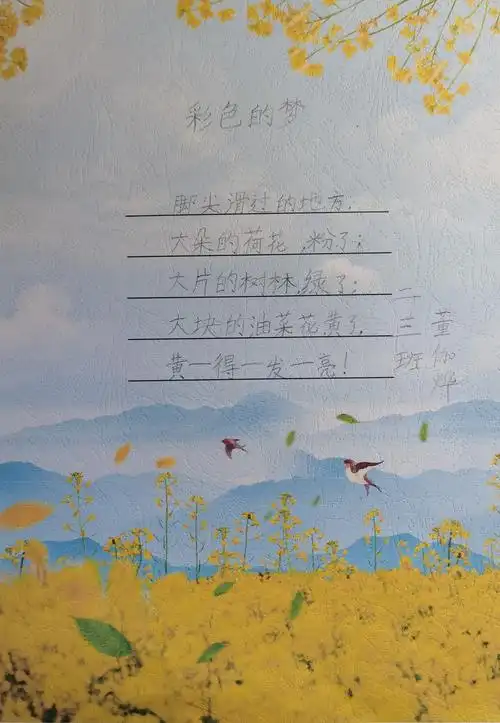 彩色的梦
脚尖滑过的地方;
大朵的荷花,粉了;
大片的树林,绿了;
大块的油菜花黄了
黄一得一发一亮!
二三班
董烨